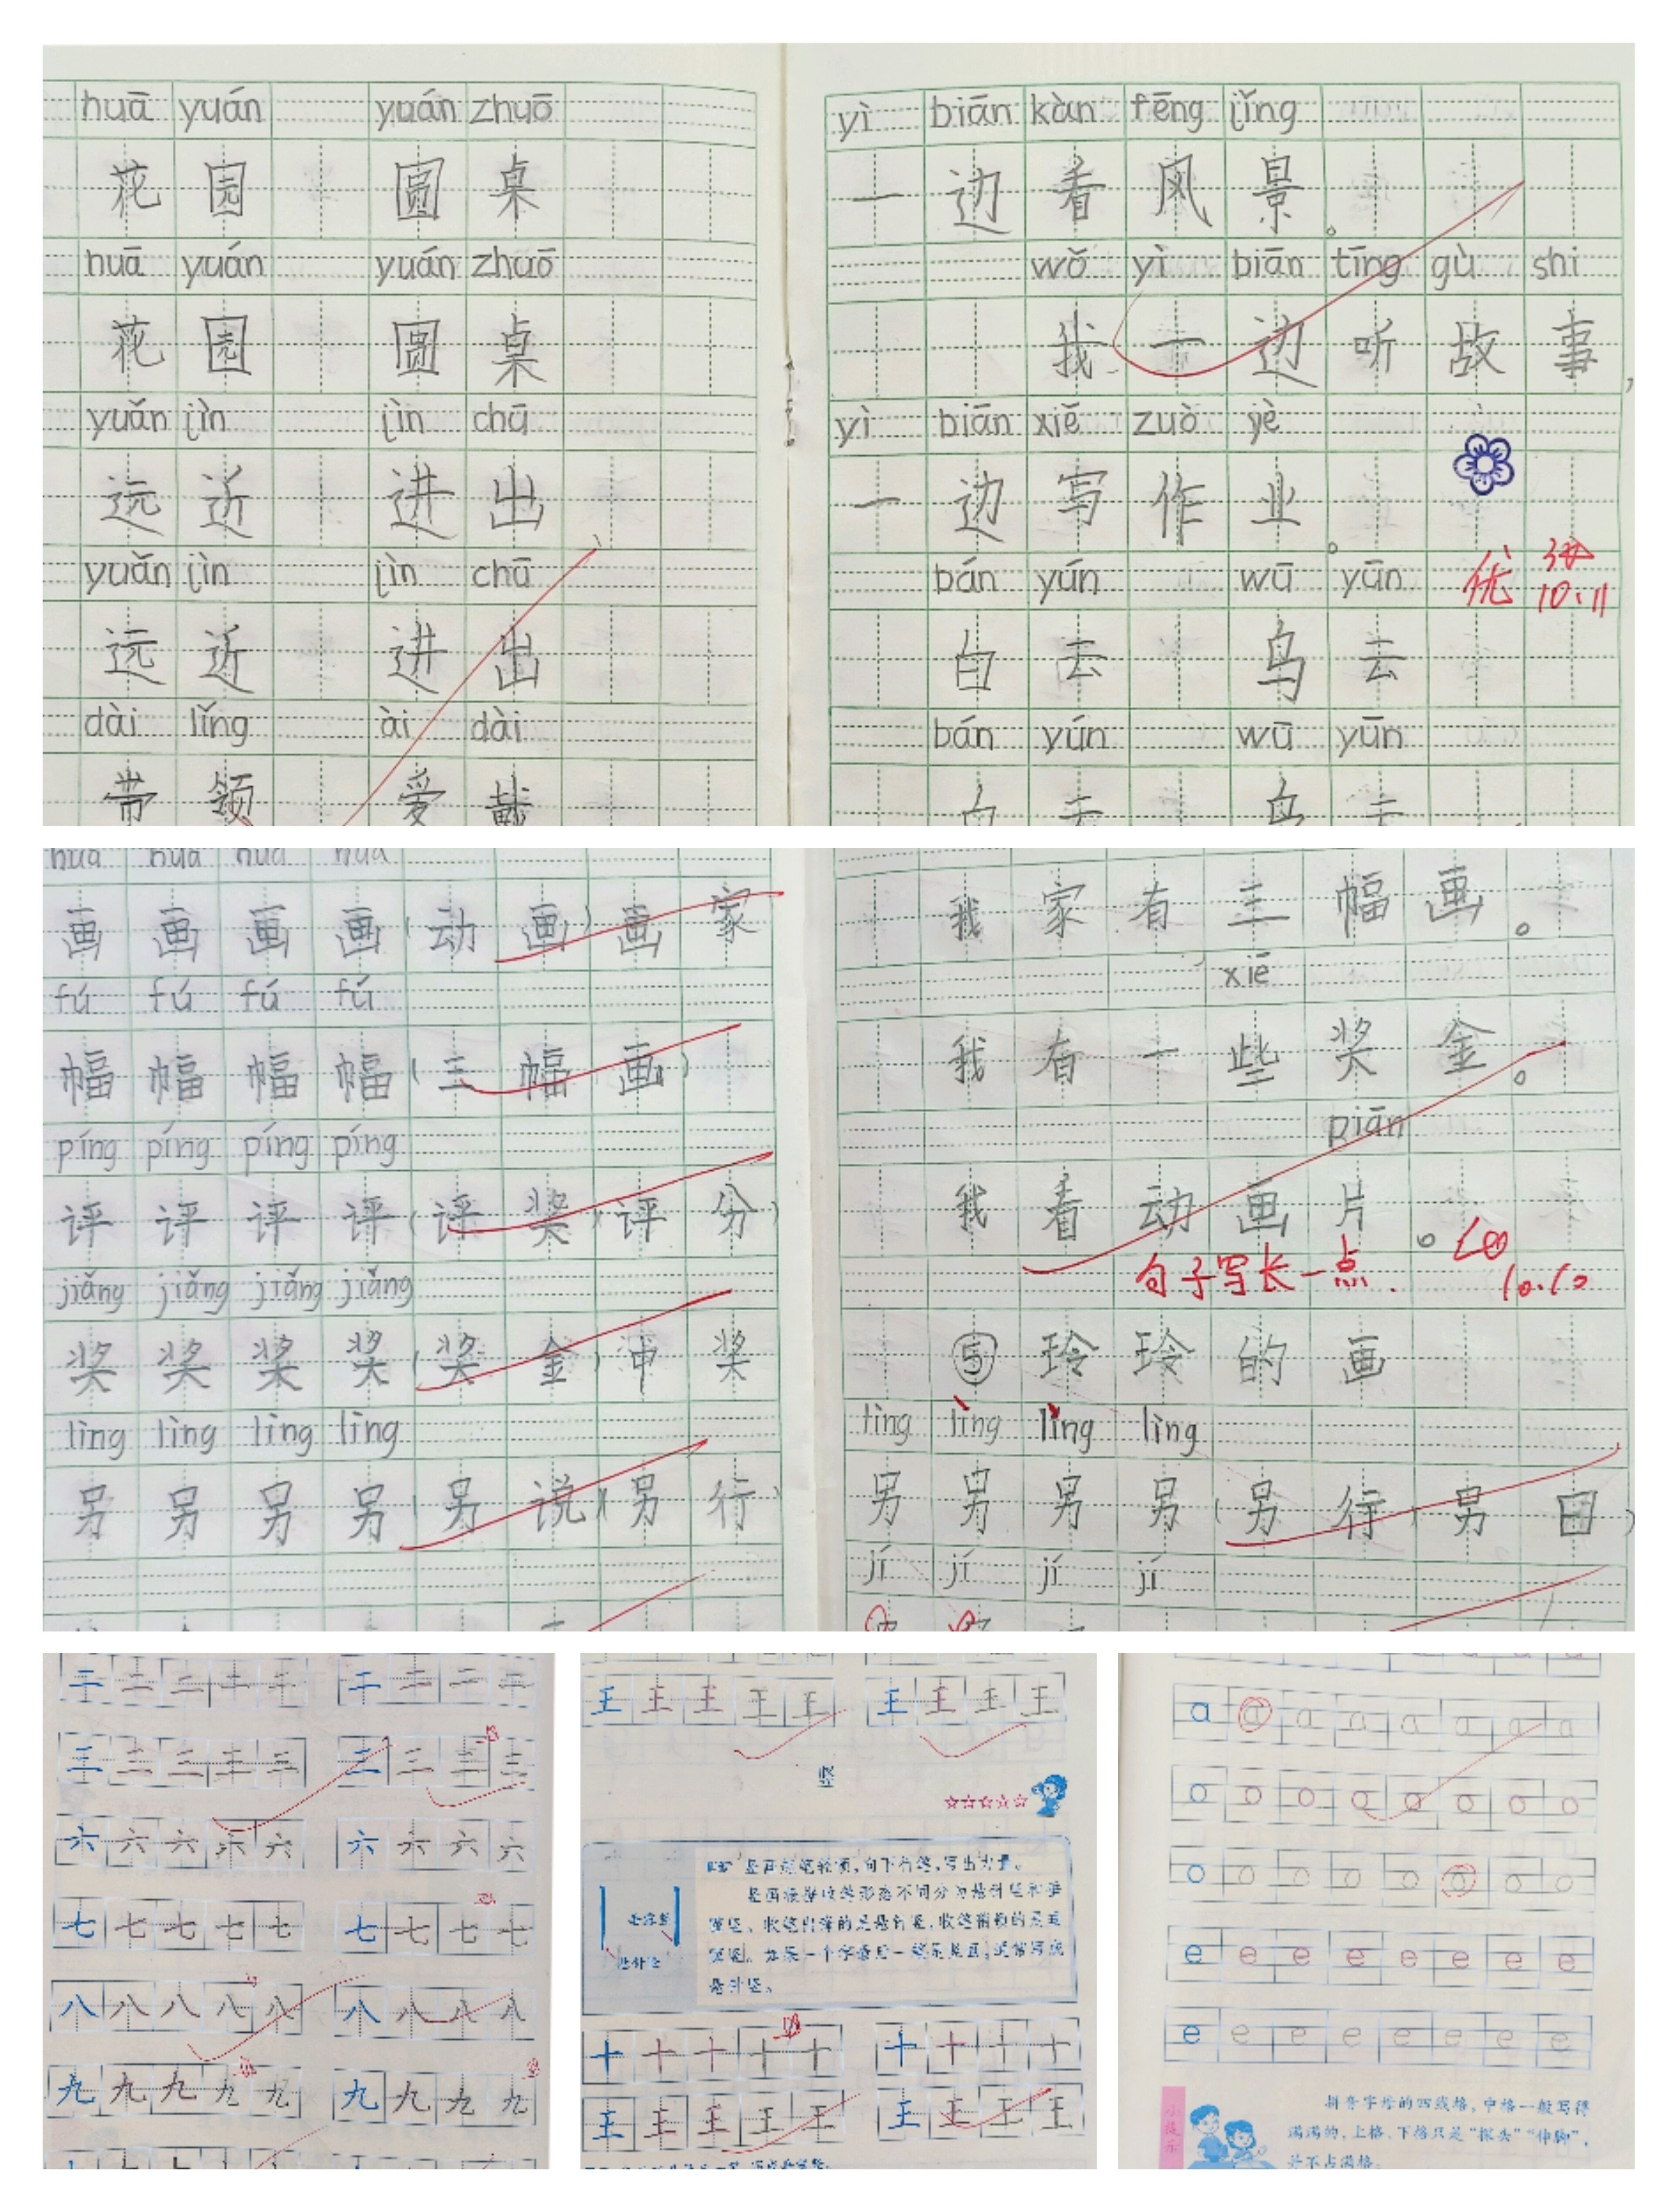 huā yuán yuán zhuō
花园 圆桌
huā yuán yuán zhuō
花园 圆桌
yuǎn jìn jìn chū
远近 进出
yuǎn jìn jìn chū
远近 进出
dài lǐng ài dài
带领 爱戴
yì biān kàn fēng jǐng
一边看风景。
wǒ yì biān tīng gù shi
我一边听故事,
yì biān xiě zuò yè
一边写作业。
优
10.11
bán yún wū yūn
白云 乌云
bán yún wū yūn
白云 乌云
huà huà huà huà
画画画画(动画)画家
fú fú fú fú
幅幅幅幅(三幅画)
píng píng píng píng
评评评评(评奖)(评分)
jiǎng jiǎng jiǎng jiǎng
奖奖奖奖(奖金)冲奖
lìng lìng lìng lìng
另另另另(另说)(另行)
我家有三幅画。
xiē
我有一些奖金。
piān
我看动画片。
句子写长一点.
10.10
⑤玲玲的画
lìng lìng lìng lìng
另另另另(另行)另日)
jí jí jí jí
二二二二二 二二二二
三三三三三 三三三三
六六六六六 六六六六
七七七七七 七七七七
八八八八八 八八八八
九九九九九 九九九九
王王王王王 王王王王
竖
☆☆☆☆☆
十十十十十 十十十十
王王王王王 王王王王
a a a a a a a a
o o o o o o o o
o o o o o o o o
e e e e e e e e
e e e e e e e e
拼音字母的四线格,中格一般写得
满满的,上格、下格只是“探头”“伸脚”,
并不占满格。